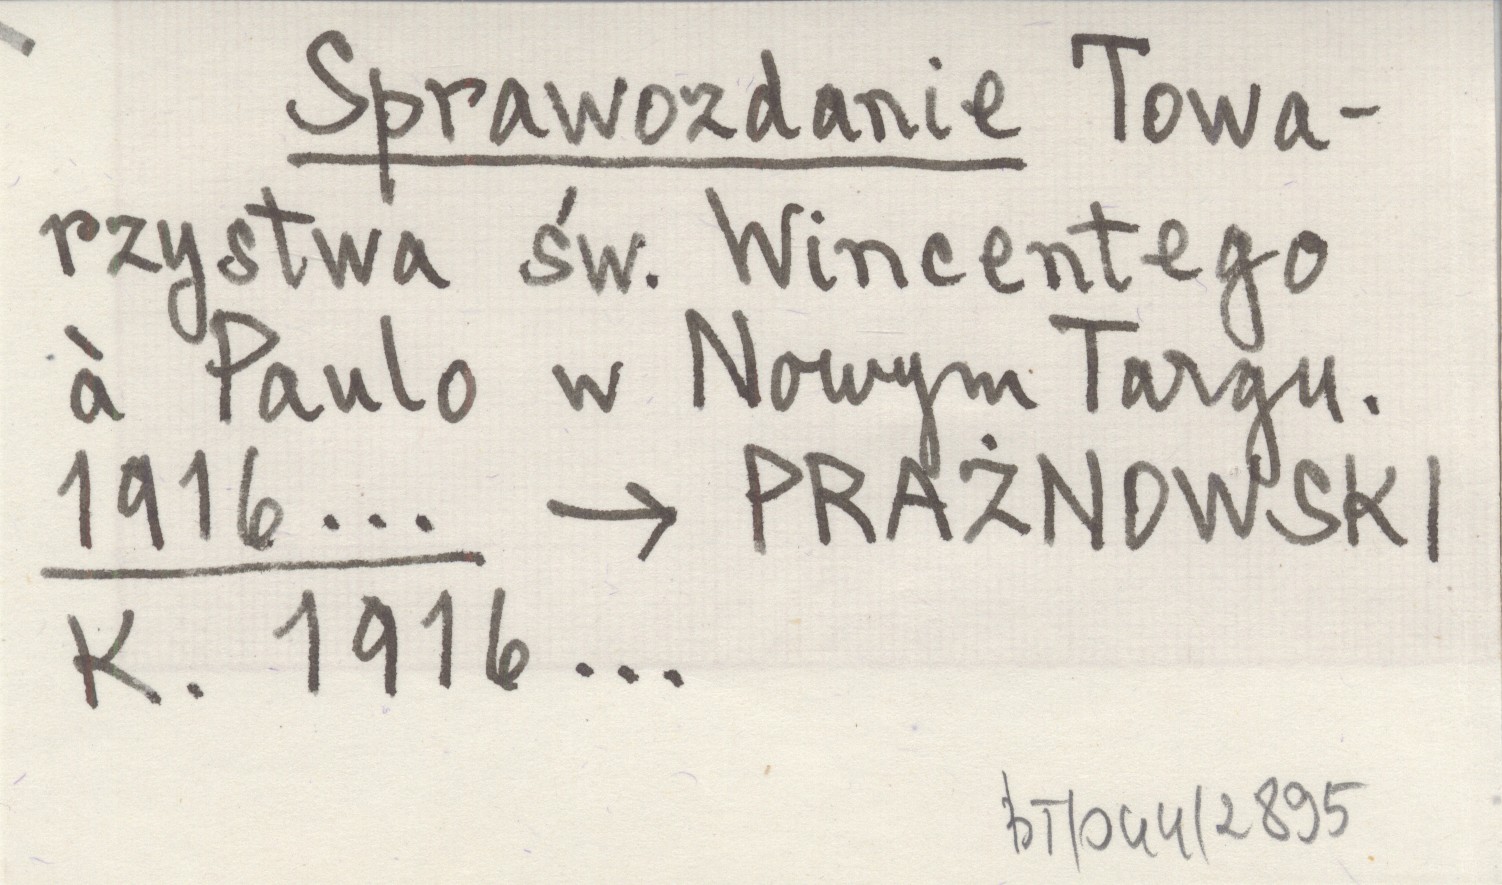 Sprawozdanie Towa-
rzystwa św. Wincentego
à Paulo w Nowym Targu.
1916... → PRAŻNOWSKI
K. 1916...
bT/pau/2895